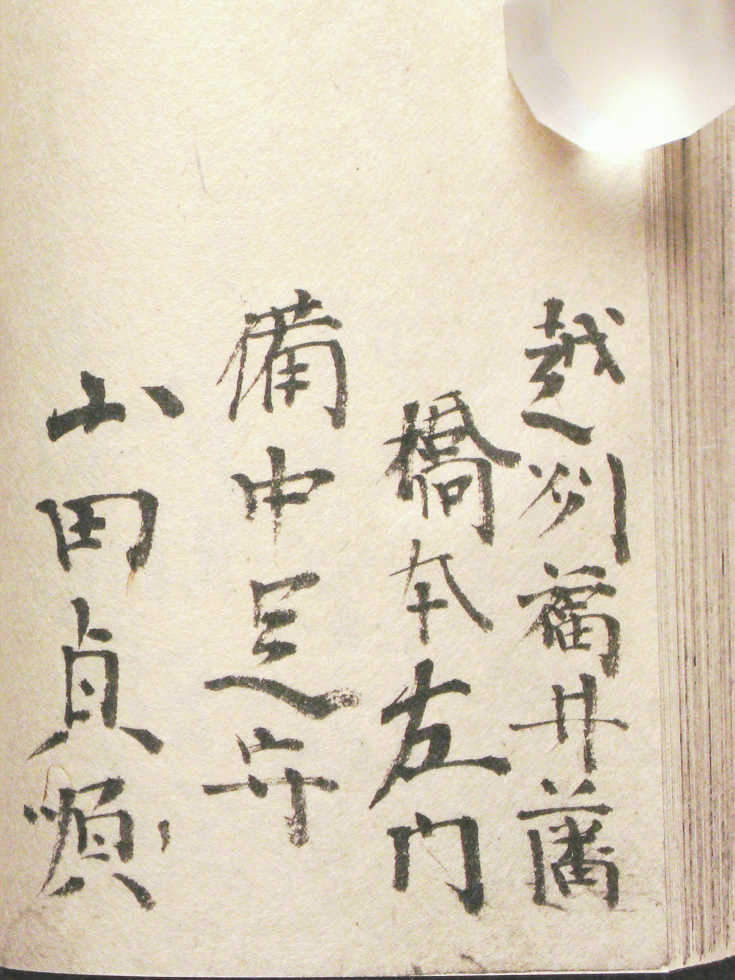 越州福井藩
橋本左内
備中足守
山田貞順